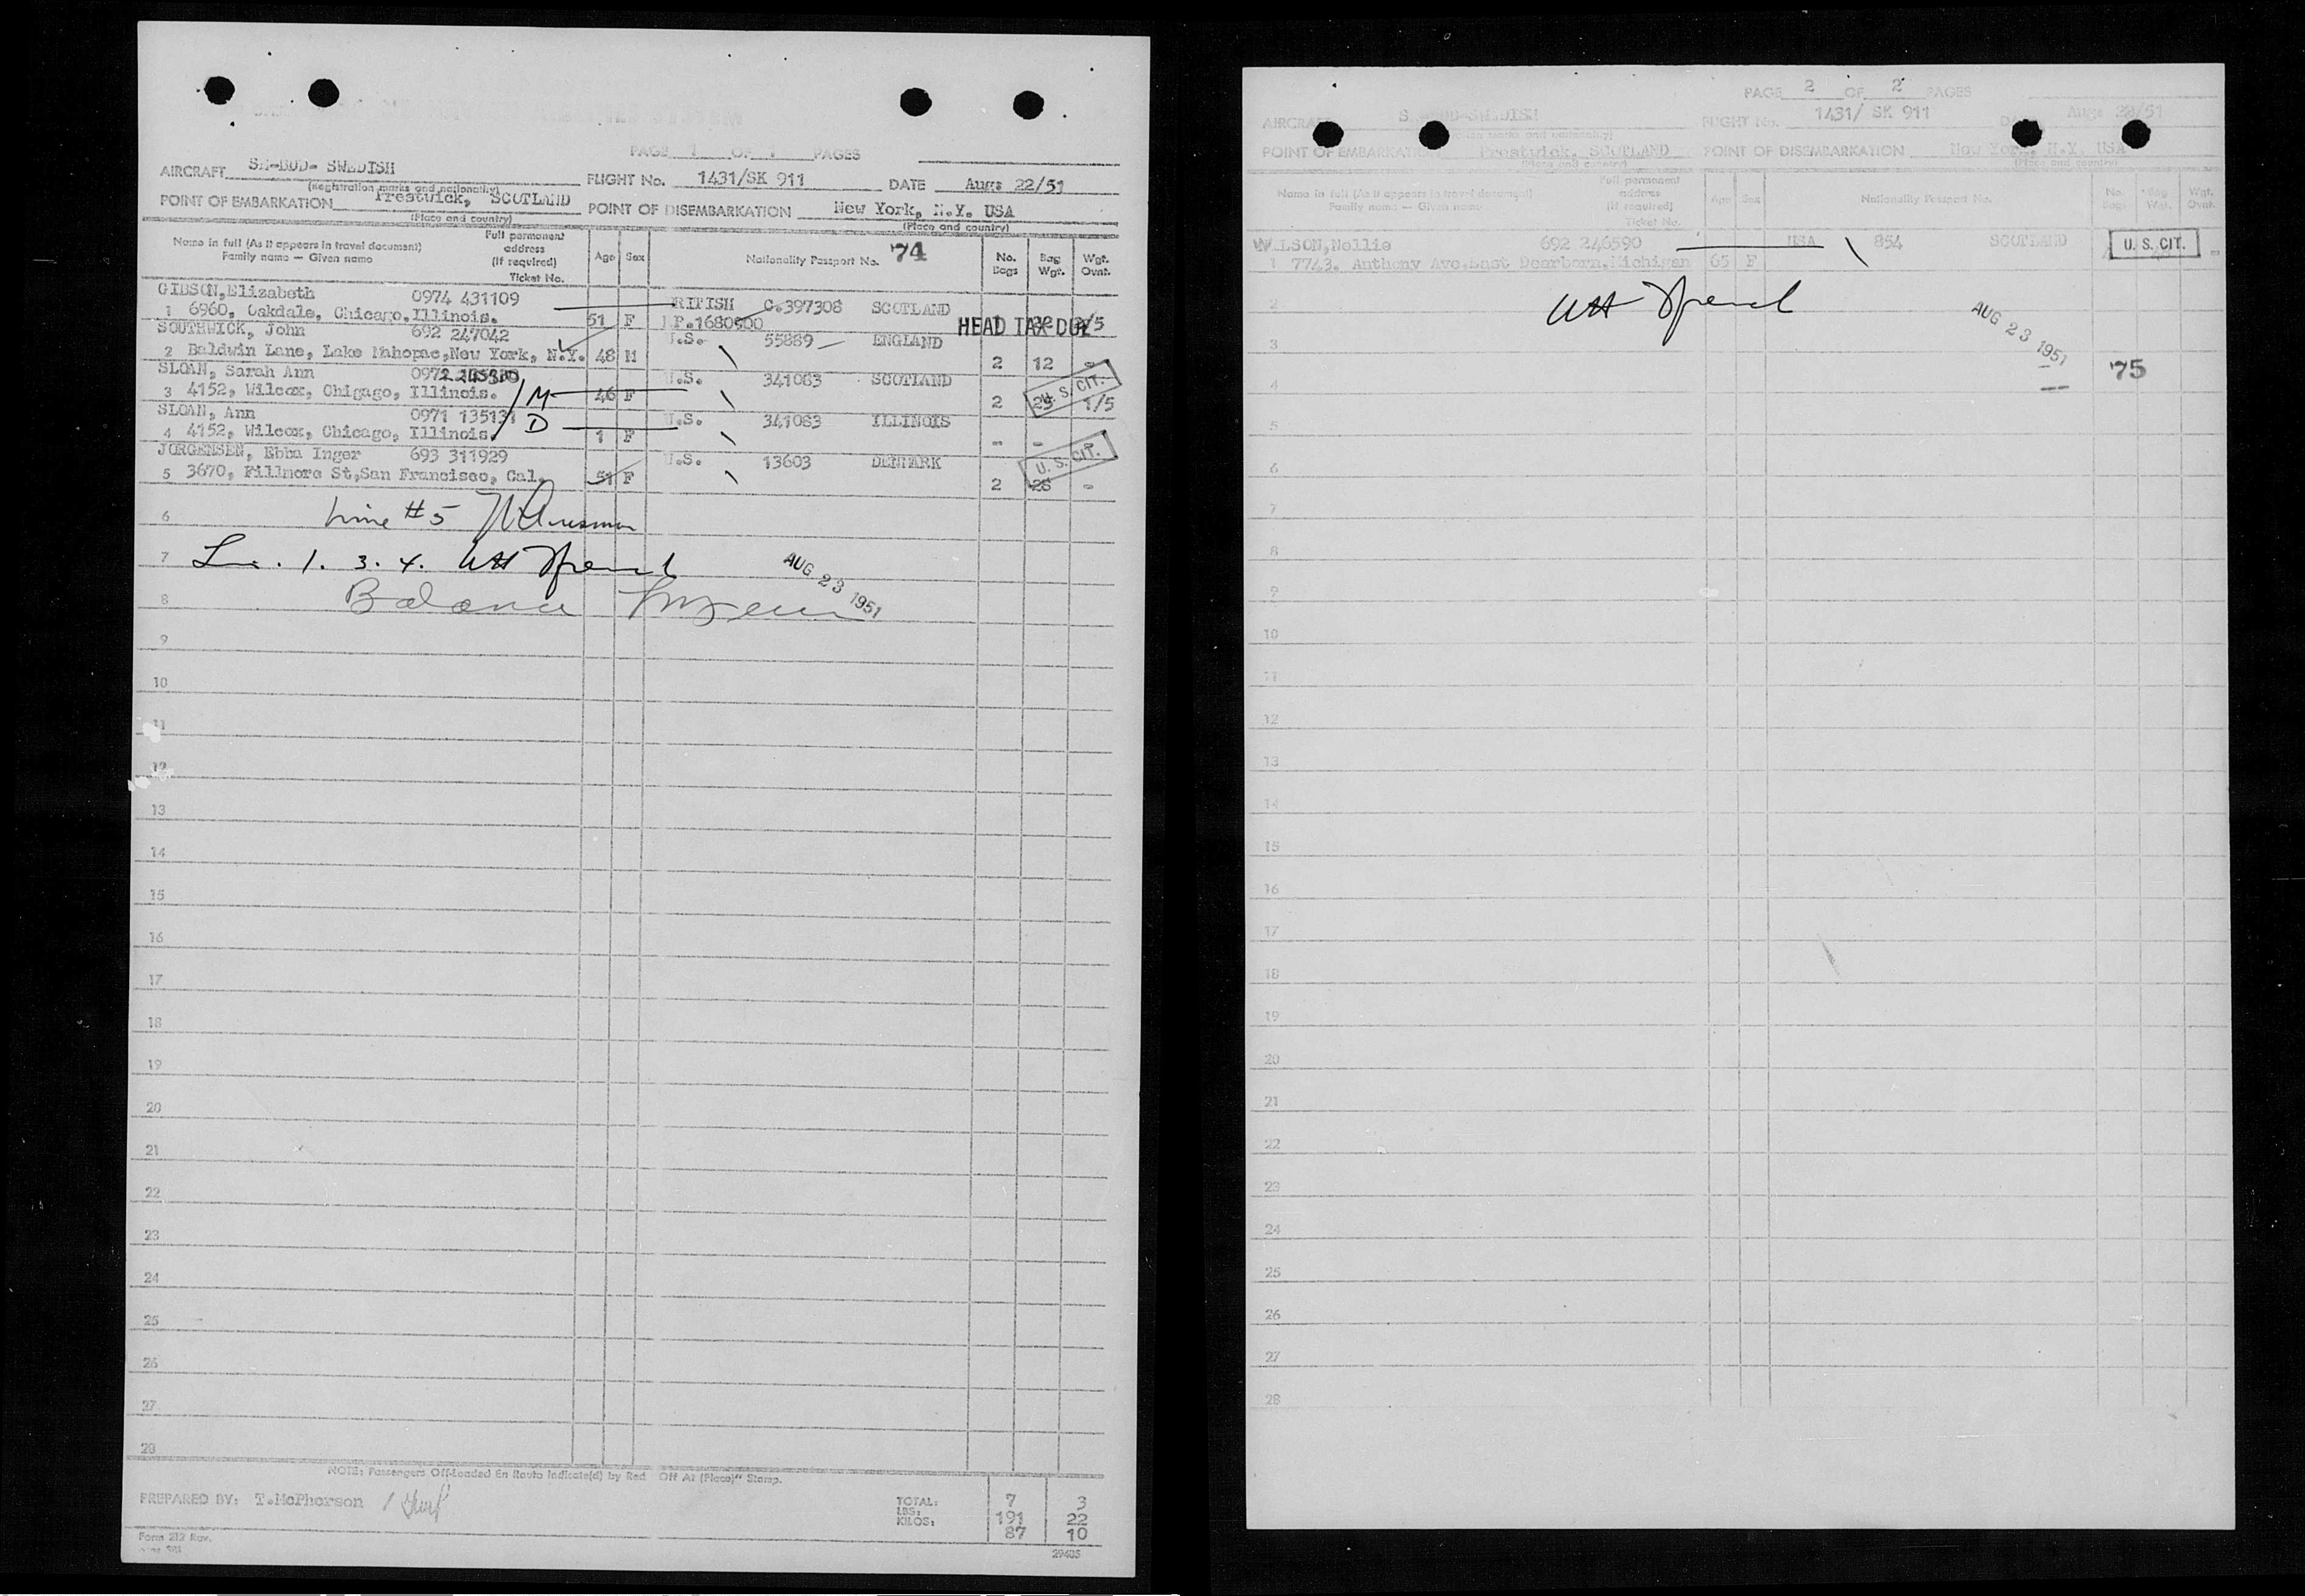 PAGE 1 OF 1 PAGES
AIRCRAFT SE-BUD- SWEDISH FLIGHT No. 1431/SK 911 DATE Aug: 22/51
(Registration marks and nationality)
POINT OF EMBARKATION Prestwick, SCOTLAND POINT OF DISEMBARKATION New York, N.Y. USA
(Place and country) (Place and country)
Name in full (As it appears in travel document) Family name — Given name Full permanent address (If required) Ticket No. Age Sex Nationality Passport No. 74 No. Bags Bag Wgt. Wgt. Ovnt.
GIBSON, Elizabeth 0974 431109 BRITISH C.397308 SCOTLAND
1 6960, Oakdale, Chicago. Illinois. 51 F HEAD TAX DUE
SOUTHWICK, John 692 247042 U.S. 55889 ENGLAND
2 Baldwin Lane, Lake Mahopac, New York, N.Y. 48 M 2 12 -
SLOAN, Sarah Ann U.S. 341083 SCOTLAND
3 4152, Wilcox, Chigago, Illinois. M 46 F 2 25 1/5 U.S. CIT.
SLOAN, Ann 0971 135131 U.S. 341083 ILLINOIS
4 4152, Wilcox, Chicago, Illinois. D 1 F - -
JORGENSEN, Ebba Inger 693 311929 U.S. 13603 DENMARK U.S. CIT.
5 3670, Fillmore St, San Francisco, Cal. 51 F 2 26 -
6 Line #5
7 1. 3. 4.
AUG 23 1951
8 Balance
9
10
11
12
13
14
15
16
17
18
19
20
21
22
23
24
25
26
27
28
NOTE: Passengers Off-Loaded En Route Indicate(d) by Red Off At (Place)" Stamp.
PREPARED BY: T.McPherson
TOTAL: 7 3
LBS: 191 22
KILOS: 87 10
Form 212 Rev.
29405
PAGE 2 OF 2 PAGES
AIRCRAFT SWEDISH FLIGHT No. 1431/ SK 911 Aug: 22/51
POINT OF EMBARKATION Prestwick, SCOTLAND POINT OF DISEMBARKATION New York, N.Y. USA
(Place and country) (Place and country)
Name in full (As it appears in travel document) Family name — Given name Full permanent address (If required) Ticket No. Age Sex Nationality Passport No. No. Bags Bag Wgt. Wgt. Ovnt.
WILSON, Nellie 692 246590 USA 854 SCOTLAND U. S. CIT.
1 7743. Anthony Ave. East Dearborn, Michigan 65 F
2
AUG 23 1951
3
4 75
5
6
7
8
9
10
11
12
13
14
15
16
17
18
19
20
21
22
23
24
25
26
27
28